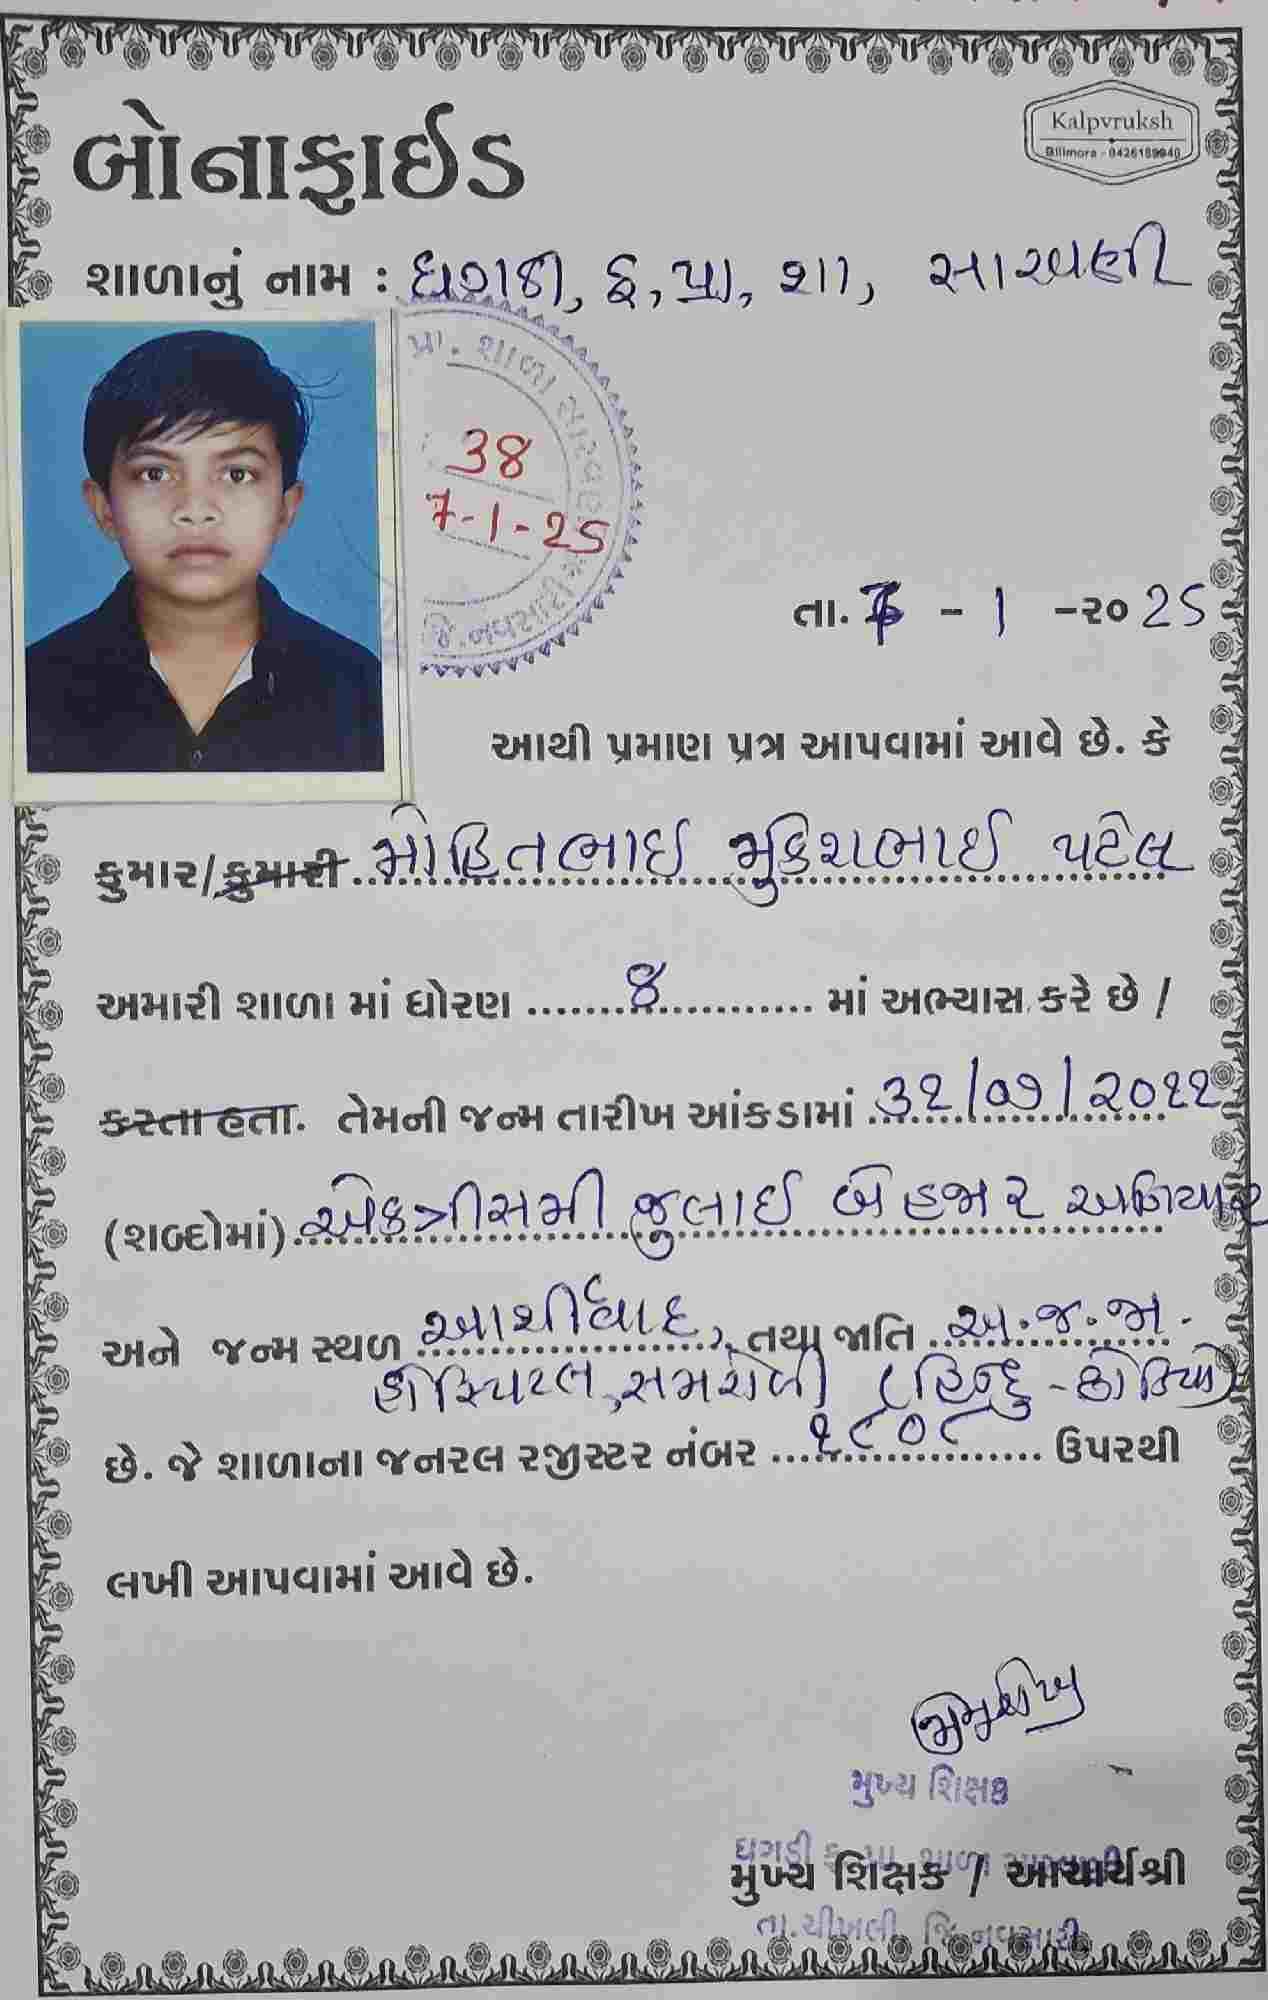 બોનાફાઈડ
Kalpvruksh
Bilimora - 9426189940
શાળાનું નામ : ઘગડી, ક, પ્રા, શા, સારવણી
પ્રા. શાળા સારવણી
38
7-1-25
જિ.નવસારી
તા. 7 - 1 -૨૦ 25
આથી પ્રમાણ પ્રત્ર આપવામાં આવે છે. કે
કુમાર/કુમારી મોહિતભાઈ મુકેશભાઈ પટેલ
અમારી શાળા માં ધોરણ ૭ માં અભ્યાસ કરે છે /
કરતા હતા. તેમની જન્મ તારીખ આંકડામાં ૩૧/૦૭/૨૦૧૧
(શબ્દોમાં) એકત્રીસમી જુલાઈ બેહજાર અગિયાર
અને જન્મ સ્થળ આશીર્વાદ, તથા જાતિ અ.જ.જા.
હોસ્પિટલ, સમરોલી (હિન્દુ - ધોડિયા)
છે. જે શાળાના જનરલ રજીસ્ટર નંબર ૧૮૦૮ ઉપરથી
લખી આપવામાં આવે છે.
મુખ્ય શિક્ષક
ઘગડી ક. પ્રા. શાળા સારવણી
મુખ્ય શિક્ષક / આચાર્યશ્રી
તા.ચીખલી, જિ.નવસારી.